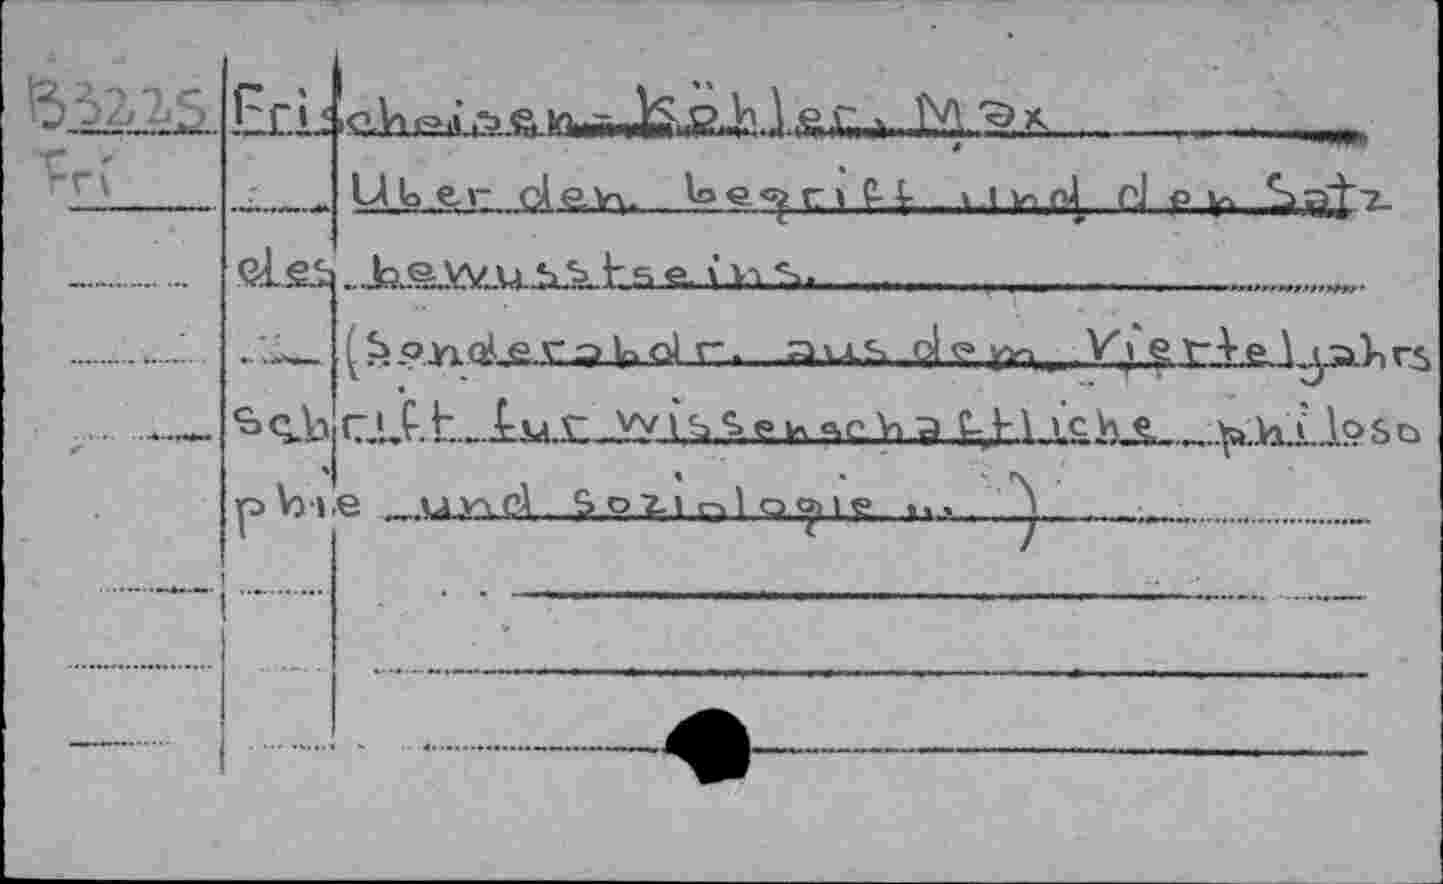 B3225 Frischeisen-Köhler, Max
Fri Uber den begriff und den Satz
des bewusstseins.
(Sonderabdr. aus dem Vierteljahrs
schrift fur wissenschaftliche philoso
phie und Soziologie ... )